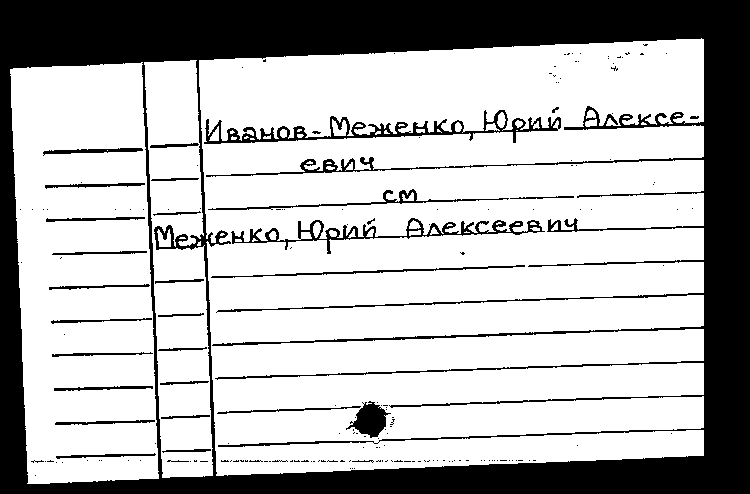 Иванов-Меженко, Юрий Алексе-
евич
см
Меженко, Юрий Алексеевич